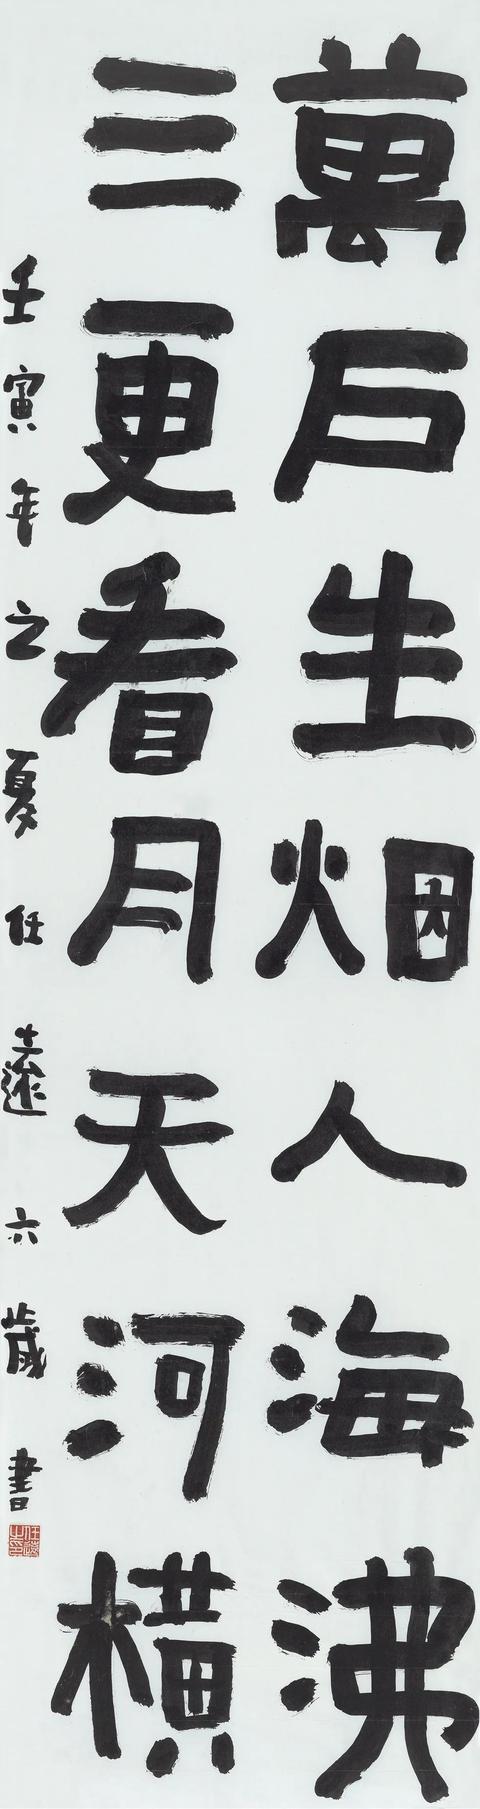 萬户生烟人海沸
三更看月天河橫
壬寅年之夏任遠六歲書